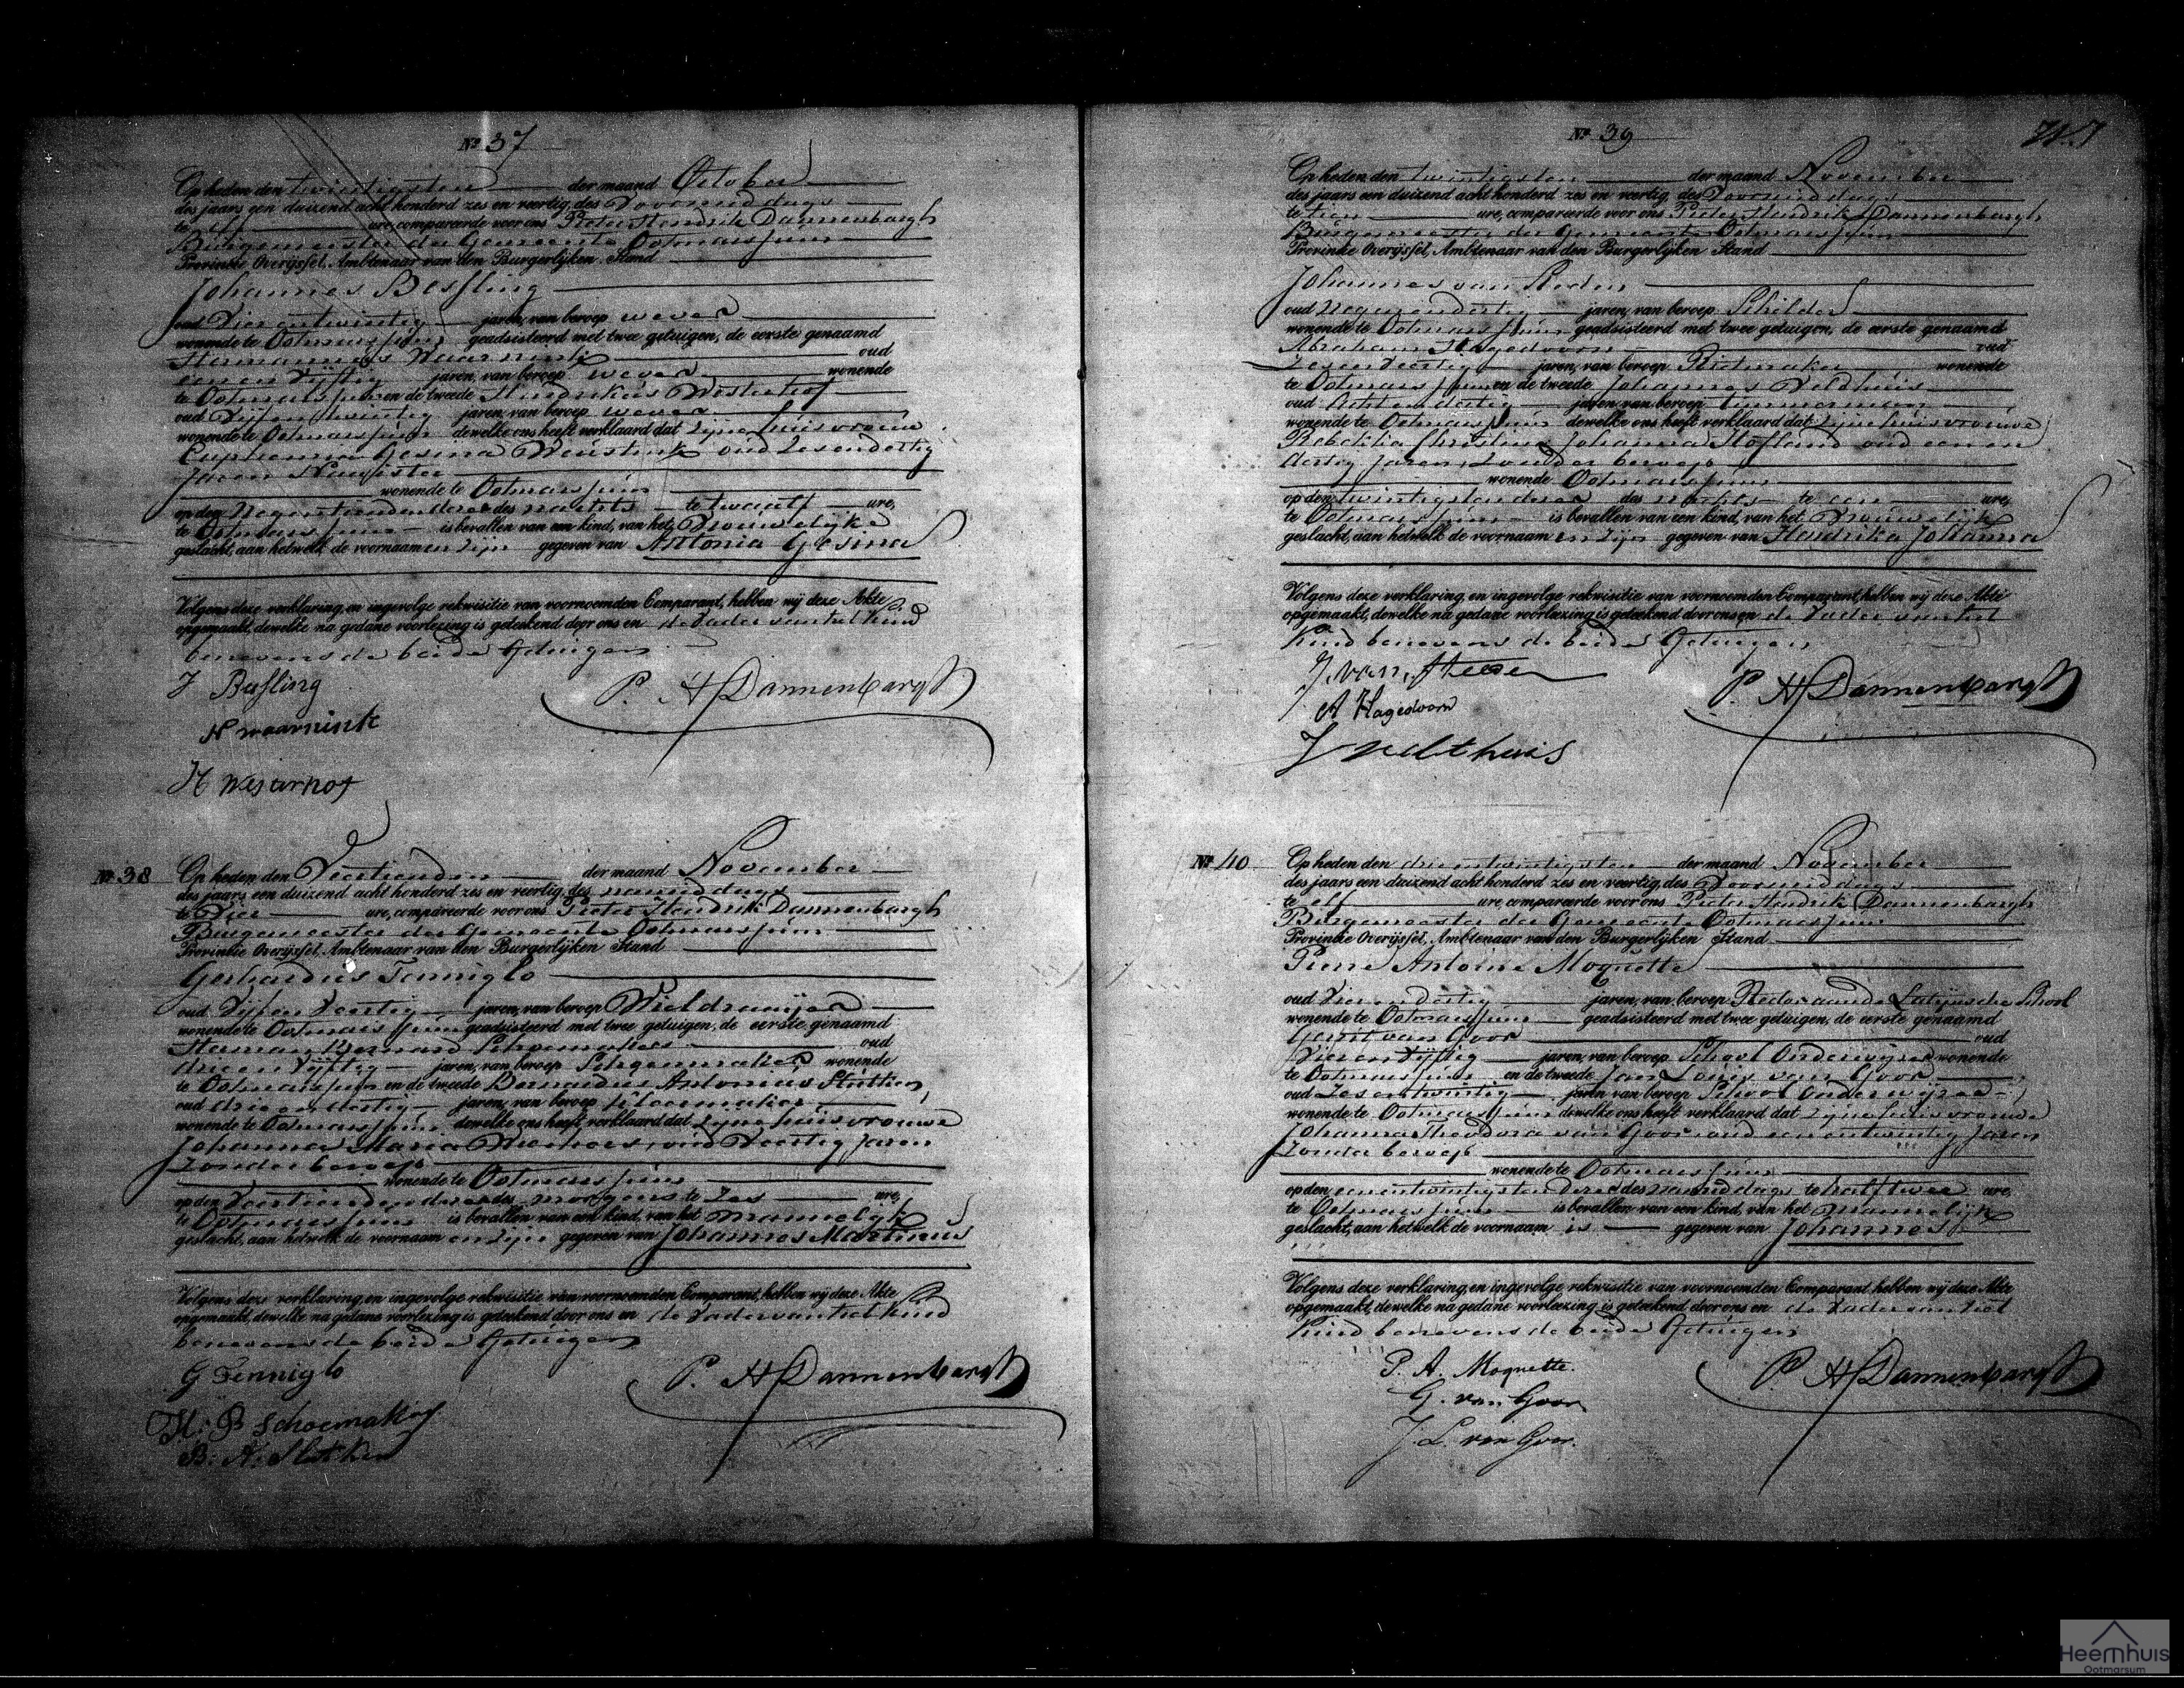 No 37
Op heden den twintigsten der maand October
des jaars een duizend acht honderd zes en veertig, des Voormiddags
te elf ure, compareerde voor ons Pieter Hendrik Dannenbargh
Burgemeester der Gemeente Ootmarssum
Provincie Overijssel, Ambtenaar van den Burgerlijken Stand
Johannes Bessling
oud Vier en twintig jaren, van beroep wever
wonende te Ootmarssum geadsisteerd met twee getuigen, de eerste genaamd
Hermannus Waarnink oud
een en Vijftig jaren, van beroep wever wonende
te Ootmarssum en de tweede Hendrikus Westerhof
oud Vijf en twintig jaren, van beroep wever
wonende te Ootmarssum dewelke ons heeft verklaard dat zijne huisvrouw
Euphemia Gesina Weustink oud zes en dertig
Jaren Naaister
wonende te Ootmarssum
op den Negentienden dezer des nachts te twaalf ure,
te Ootmarssum is bevallen van een kind, van het Vrouwelijke
geslacht, aan hetwelk de voornaamen zijn gegeven van Antonia Gesina
Volgens deze verklaring, en ingevolge rekwisitie van voornoemden Comparant, hebben wij deze Akte
opgemaakt, dewelke na gedane voorlezing is geteekend door ons en de Vader van het kind
benevens de beide Getuigen
J Bessling
P. H Dannenbargh
H waarnink
H Westerhof
No 38
Op heden den Veertienden der maand November
des jaars een duizend acht honderd zes en veertig, des namiddags
te Vier ure, compareerde voor ons Pieter Hendrik Dannenbargh
Burgemeester der Gemeente Ootmarssum
Provincie Overijssel, Ambtenaar van den Burgerlijken Stand
Gerhardus Fenniglo
oud Vijf en Veertig jaren, van beroep Wieldraaijer
wonende te Ootmarssum geadsisteerd met twee getuigen, de eerste genaamd
Herman Bernard Schoemaker oud
drie en Vijftig jaren, van beroep Schoenmaker, wonende
te Ootmarssum en de tweede Bernardus Antonius
oud drie en dertig jaren, van beroep
wonende te Ootmarssum dewelke ons heeft verklaard dat zijne huisvrouwe
Johanna Maria oud Veertig Jaren
Zonder beroep
wonende te Ootmarssum
op den Veertienden dezer des morgens te Zes ure,
te Ootmarssum is bevallen van een kind, van het Mannelijk
geslacht, aan hetwelk de voornaam en zijn gegeven van Johannes Martinus
Volgens deze verklaring, en ingevolge rekwisitie van voornoemden Comparant, hebben wij deze Akte
opgemaakt, dewelke na gedane voorlezing is geteekend door ons en de Vader van het kind
benevens de beide Getuigen
G Fenniglo
P. H Dannenbargh
H: B Schoemaker
B: A:
No 39
Op heden den twintigsten der maand November
des jaars een duizend acht honderd zes en veertig, des Voormiddags
te tien ure, compareerde voor ons Pieter Hendrik Dannenbargh
Burgemeester der Gemeente Ootmarssum
Provincie Overijssel, Ambtenaar van den Burgerlijken Stand
Johannes van Steden
oud Negen en dertig jaren, van beroep Schilder
wonende te Ootmarssum geadsisteerd met twee getuigen, de eerste genaamd
Abraham Hagedoorn oud
Zeven en Veertig jaren, van beroep Rietmaker wonende
te Ootmarssum en de tweede Johannes Veldhuis
oud Acht en dertig jaren van beroep timmerman
wonende te Ootmarssum dewelke ons heeft verklaard dat zijne huisvrouwe
Rebekka Christina Johanna Hofland oud een en
dertig Jaren, Zonder beroep
wonende Ootmarssum
op den twintigsten dezer des nachts te een ure,
te Ootmarssum is bevallen van een kind, van het Vrouwelijk
geslacht, aan hetwelk de voornaam en zijn gegeven van Hendrika Johanna
Volgens deze verklaring, en ingevolge rekwisitie van voornoemden Comparant, hebben wij deze Akte
opgemaakt, dewelke na gedane voorlezing is geteekend door ons en de Vader van het
Kind benevens de beide Getuigen
J van Steden
P. H Dannenbargh
A Hagedoorn
J veldhuis
No 40
Op heden den drie en twintigsten der maand November
des jaars een duizend acht honderd zes en veertig, des Voormiddags
te elf ure, compareerde voor ons Pieter Hendrik Dannenbargh
Burgemeester der Gemeente Ootmarssum
Provincie Overijssel, Ambtenaar van den Burgerlijken Stand
Pierre Antoine Moquette
oud Vier en dertig jaren, van beroep Rector aan de Latijnsche School
wonende te Ootmarssum geadsisteerd met twee getuigen, de eerste genaamd
Gerrit van Goor oud
Vier en Vijftig jaren, van beroep School Onderwijzer wonende
te Ootmarssum en de tweede Jan Louis van Goor
oud Zes en twintig jaren van beroep School Onderwijzer
wonende te Ootmarssum dewelke ons heeft verklaard dat zijne huisvrouwe
Johanna Theodora van Goor oud een en twintig Jaren
Zonder beroep
wonende te Ootmarssum
op den een en twintigsten dezer des namiddags te half twee ure,
te Ootmarssum is bevallen van een kind, van het Mannelijk
geslacht, aan hetwelk de voornaam is gegeven van Johannes
Volgens deze verklaring, en ingevolge rekwisitie van voornoemden Comparant, hebben wij deze Akte
opgemaakt, dewelke na gedane voorlezing is geteekend door ons en de Vader van het
Kind benevens de beide Getuigen
P. A. Moquette.
P. H Dannenbargh
G. van Goor
J. L. van Goor.
Heemhuis
Ootmarsum